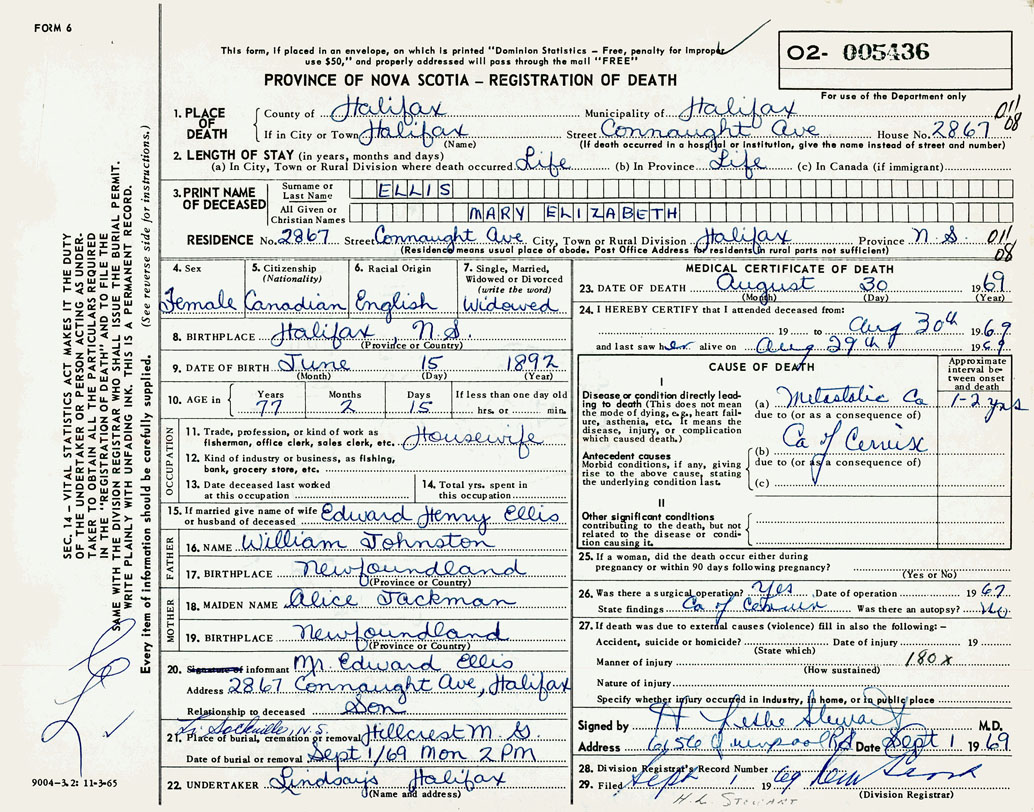 FORM 6
This form, if placed in an envelope, on which is printed "Dominion Statistics – Free, penalty for improper
use $50," and properly addressed will pass through the mail "FREE"
O2- 005436
For use of the Department only
PROVINCE OF NOVA SCOTIA – REGISTRATION OF DEATH
1. PLACE OF DEATH
County of Halifax Municipality of Halifax 011
If in City or Town Halifax Street Connaught Ave House No. 2867 08
(Name) (If death occurred in a hospital or institution, give the name instead of street and number)
2. LENGTH OF STAY (in years, months and days)
(a) In City, Town or Rural Division where death occurred Life (b) In Province Life (c) In Canada (if immigrant)
3. PRINT NAME OF DECEASED
Surname or Last Name ELLIS
All Given or Christian Names MARY ELIZABETH
RESIDENCE No. 2867 Street Connaught Ave City, Town or Rural Division Halifax Province N.S. 011
(Residence means usual place of abode. Post Office Address for residents in rural parts not sufficient) 08
4. Sex
Female
5. Citizenship
(Nationality)
Canadian
6. Racial Origin
English
7. Single, Married,
Widowed or Divorced
(write the word)
Widowed
8. BIRTHPLACE Halifax, N.S.
(Province or Country)
9. DATE OF BIRTH June 15 1892
(Month) (Day) (Year)
10. AGE in Years Months Days If less than one day old
77 2 15 hrs. or min.
OCCUPATION
11. Trade, profession, or kind of work as
fisherman, office clerk, sales clerk, etc. Housewife
12. Kind of industry or business, as fishing,
bank, grocery store, etc.
13. Date deceased last worked
at this occupation
14. Total yrs. spent in
this occupation
15. If married give name of wife
or husband of deceased Edward Henry Ellis
FATHER
16. NAME William Johnston
17. BIRTHPLACE Newfoundland
(Province or Country)
MOTHER
18. MAIDEN NAME Alice Jackman
19. BIRTHPLACE Newfoundland
(Province or Country)
20. Signature of informant Mr. Edward Ellis
Address 2867 Connaught Ave, Halifax
Relationship to deceased Son
Sackville, N.S.
21. Place of burial, cremation or removal Hillcrest
Date of burial or removal Sept 1/69 Mon 2 PM
22. UNDERTAKER Lindsays Halifax
(Name and address)
MEDICAL CERTIFICATE OF DEATH
23. DATE OF DEATH August 30 1969
(Month) (Day) (Year)
24. I HEREBY CERTIFY that I attended deceased from:
19 to Aug 30th 1969
and last saw her alive on Aug 29th 1969
CAUSE OF DEATH
Approximate
interval be-
tween onset
and death
I
Disease or condition directly lead-
ing to death (This does not mean
the mode of dying, e.g., heart fail-
ure, asthenia, etc. It means the
disease, injury, or complication
which caused death.)
(a) Metastatic Ca 1-2 yrs
due to (or as a consequence of)
Antecedent causes
Morbid conditions, if any, giving
rise to the above cause, stating
the underlying condition last.
(b) Ca of Cervix
due to (or as a consequence of)
(c)
II
Other significant conditions
contributing to the death, but not
related to the disease or condi-
tion causing it.
25. If a woman, did the death occur either during
pregnancy or within 90 days following pregnancy?
(Yes or No)
26. Was there a surgical operation? Yes Date of operation 1967
State findings Ca of Cervix Was there an autopsy? No
27. If death was due to external causes (violence) fill in also the following: –
Accident, suicide or homicide? Date of injury 19
(State which)
Manner of injury 180 x
(How sustained)
Nature of injury
Specify whether injury occurred in Industry, in home, or in public place
Signed by H Leslie Stewart M.D.
Address 6156 Quinpool Rd Date Sept 1 1969
28. Division Registrar's Record Number
29. Filed Sept 1 1969
(Division Registrar)
H. L. STEWART
SEC. 14 – VITAL STATISTICS ACT MAKES IT THE DUTY
OF THE UNDERTAKER OR PERSON ACTING AS UNDER-
TAKER TO OBTAIN ALL THE PARTICULARS REQUIRED
IN THE "REGISTRATION OF DEATH" AND TO FILE THE
SAME WITH THE DIVISION REGISTRAR WHO SHALL ISSUE THE BURIAL PERMIT.
WRITE PLAINLY WITH UNFADING INK. THIS IS A PERMANENT RECORD.
Every item of information should be carefully supplied. (See reverse side for instructions.)
9004–3.2: 11-3-65